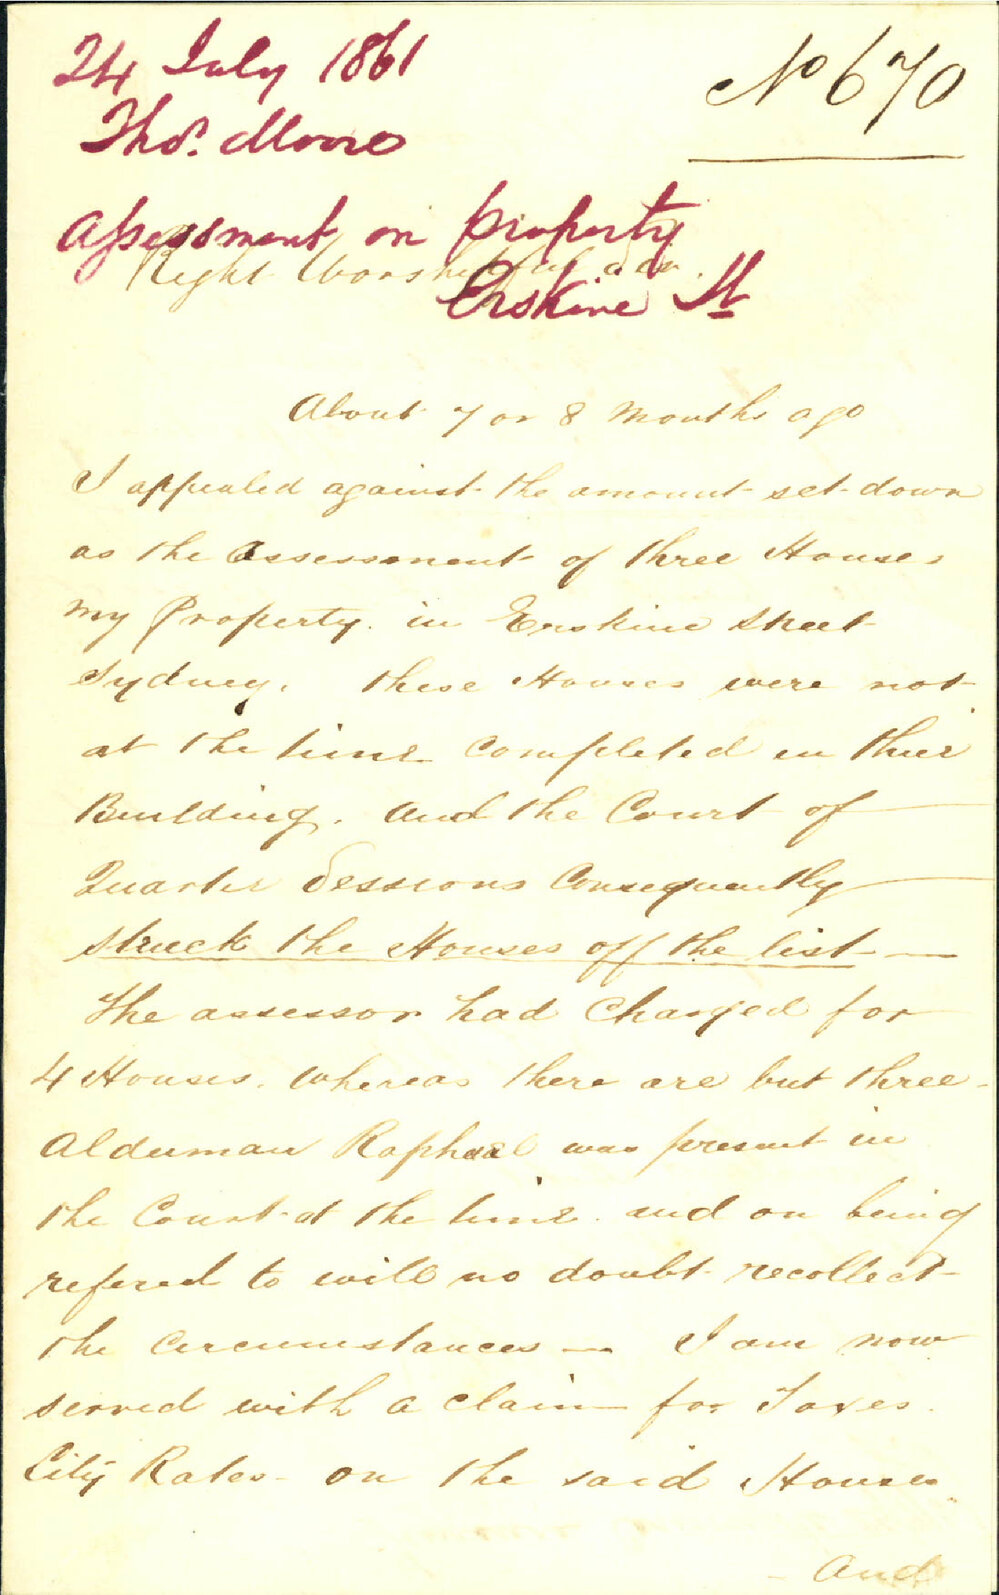 24 July 1861
No 670
Thos. Moore
Assessment on property
Right Worshipful
Erskine St
About 7 or 8 Months ago
I appealed against the amount set down
as the Assessment of three Houses
my Property. in Erskine Street
Sydney. these Houses were not
at the time completed in thier
Building. and the Court of
Quarter Sessions Consequently
struck the Houses off the list —
The assessor had Charged for
4 Houses. whereas there are but three -
Alderman Raphael was present in
the Court at the time. and on being
refered to will no doubt recollect
the Circumstances — I am now
served with a claim for Taxes.
City Rates - on the said Houses
- and